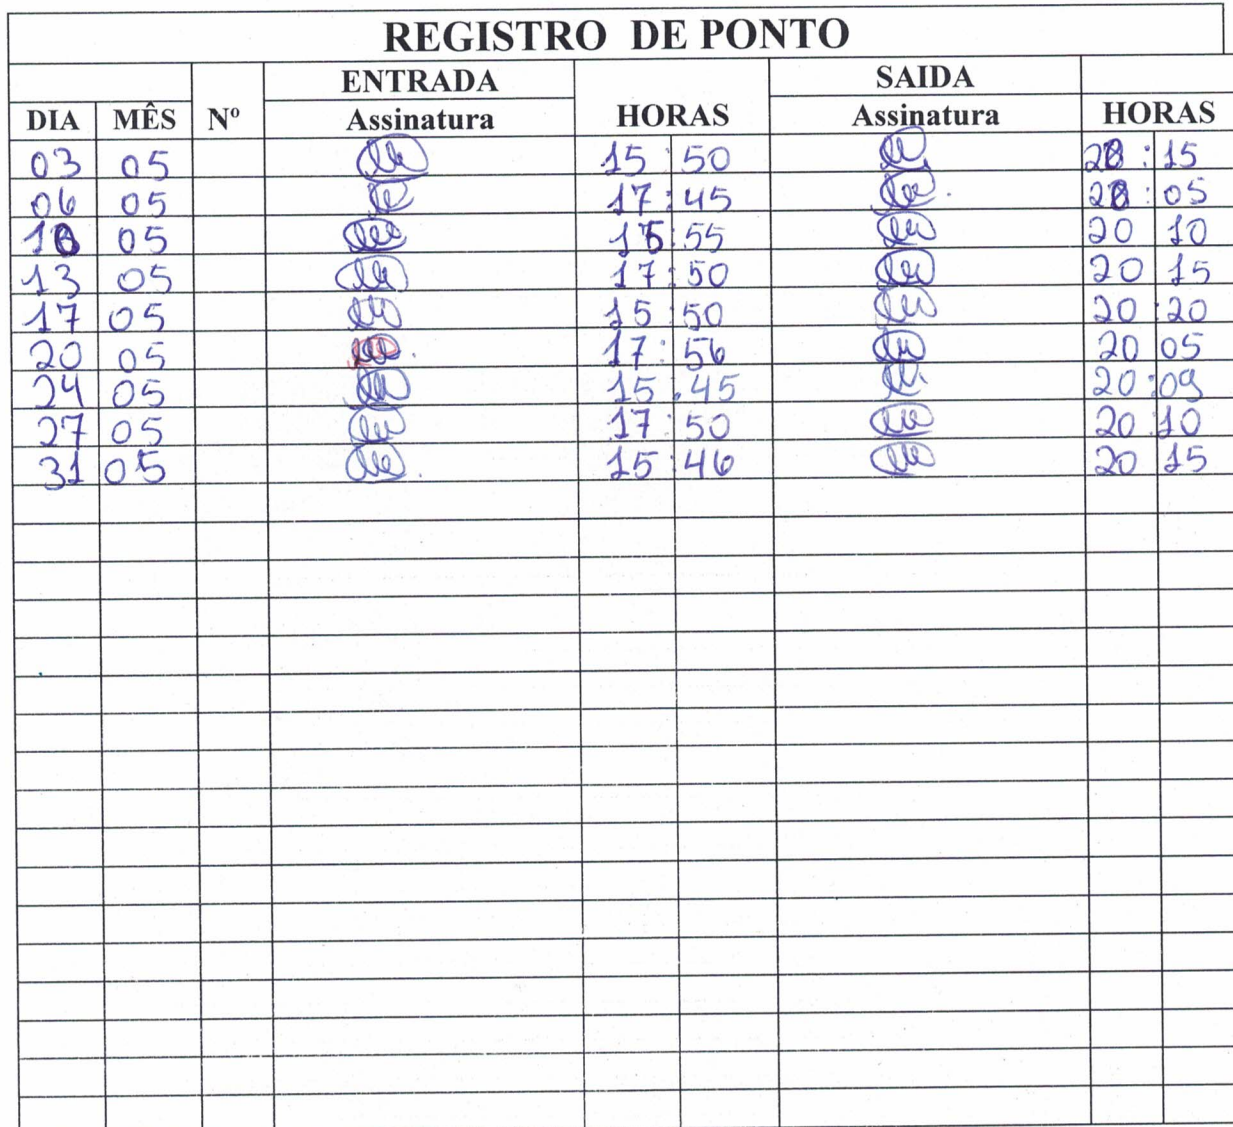 REGISTRO DE PONTO
ENTRADA SAIDA
DIA MÊS Nº Assinatura HORAS Assinatura HORAS
03 05 15:50 20:15
06 05 17:45 20:05
10 05 15:55 20 10
13 05 17:50 20 15
17 05 15:50 20:20
20 05 17:56 20 05
24 05 15.45 20:09
27 05 17:50 20:10
31 05 15:46 20 15